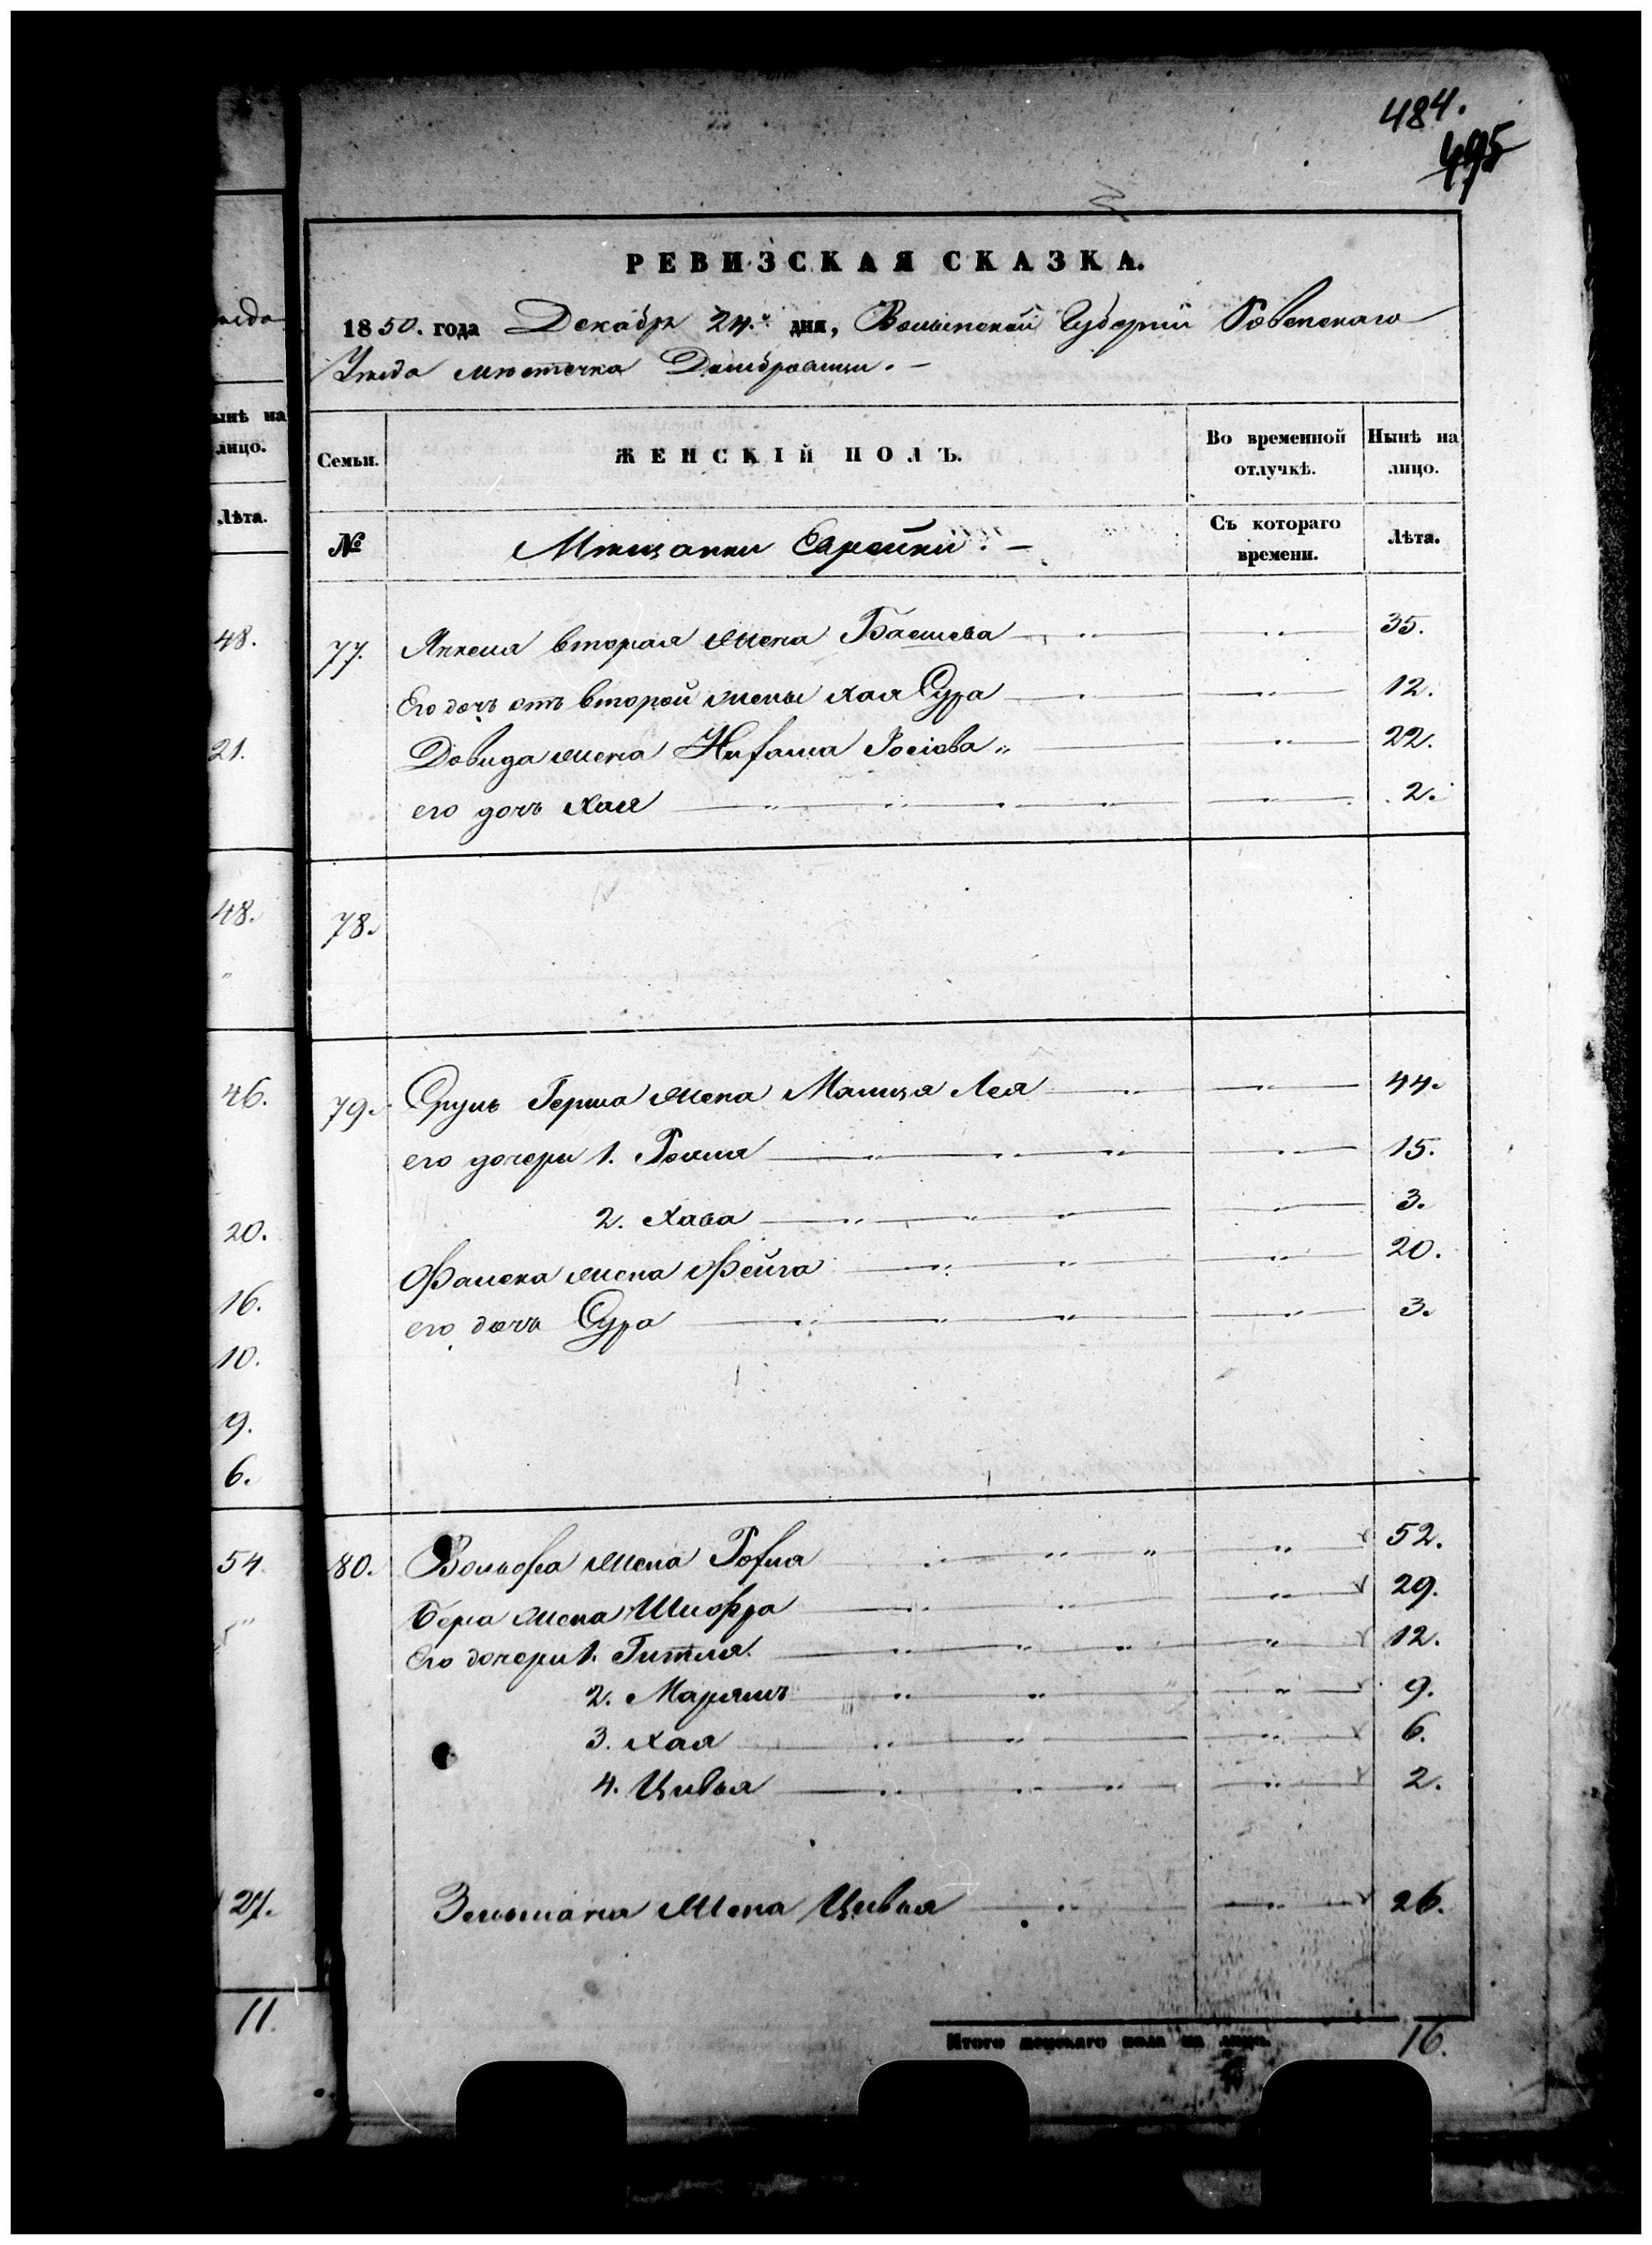 484.
495
РЕВИЗСКАЯ СКАЗКА.
1850. года Декабря 24.го дня, Волынской Губерніи Ровенскаго
Уѣзда мѣстечка Домбровицы. –
Семьи.
ЖЕНСКІЙ ПОЛЪ.
Во временной отлучкѣ.
Нынѣ на лицо.
№
Мѣщанки Еврейки. –
Съ котораго времени.
Лѣта.
77. Янкеля вторая жена Башева 35.
Его дочь отъ второй жены Хая Сура 12.
Довида жена 22.
его дочь Хая 2.
78.
79. Сруль Герша жена Малца Лея 44.
его дочери 1. 15.
2. Хава 3.
жена Фейга 20.
его дочь Сура 3.
80. Вольфа жена 52.
Бера жена Шифра 29.
Его дочери 1. Гитля 12.
2. Марьямъ 9.
3. Хая 6.
4. Цивья 2.
Зельмана жена Цивья 26.
Итого женскаго пола на лицо. 16.
ынѣ на
лицо.
Лѣта.
48.
21.
48.
46.
20.
16.
10.
9.
6.
54
27.
11.